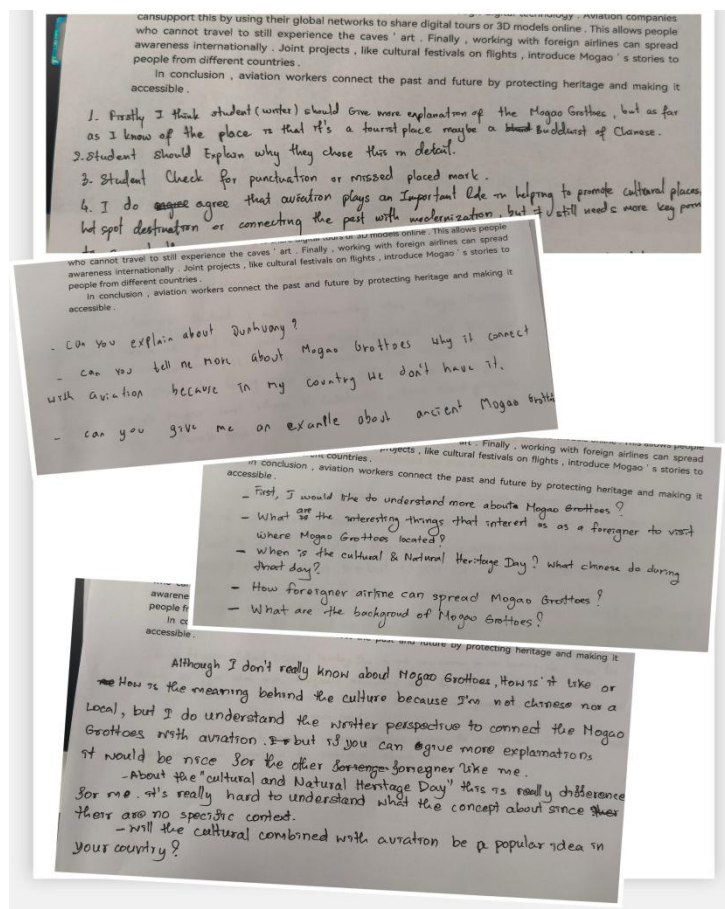 cansupport this by using their global networks to share digital tours or 3D models online . This allows people
who cannot travel to still experience the caves ' art . Finally , working with foreign airlines can spread
awareness internationally . Joint projects , like cultural festivals on flights , introduce Mogao ' s stories to
people from different countries .
In conclusion , aviation workers connect the past and future by protecting heritage and making it
accessible .
1. Firstly I think student (writer) should Give more explanation of the Mogao Grottoes, but as far
as I know of the place is that it's a tourist place maybe a Buddhist of Chanese.
2. Student should Explain why they chose this in detail.
3. Student Check for punctuation or missed placed mark.
4. I do agree that aviation plays an Important Role in helping to promote cultural places,
hot spot destination or connecting the past with modernization, but it still needs more key
who cannot travel to still experience the caves ' art . Finally , working with foreign airlines can spread
awareness internationally . Joint projects , like cultural festivals on flights , introduce Mogao ' s stories to
people from different countries .
In conclusion , aviation workers connect the past and future by protecting heritage and making it
accessible .
- Can you explain about Dunhuang ?
- can you tell me more about Mogao Grottoes why it connect
with aviation because in my country we don't have it.
- can you give me an example about ancient Mogao
Finally , working with foreign airlines can spread
countries , like cultural festivals on flights , introduce Mogao ' s stories to
In conclusion , aviation workers connect the past and future by protecting heritage and making it
accessible .
- First, I would like to understand more about Mogao Grottoes ?
- What are the interesting things that interest us as a foreigner to visit
where Mogao Grottoes located ?
- When is the cultural & Natural Heritage Day ? What chinese do during
that day ?
- How foreigner airline can spread Mogao Grottoes ?
- What are the backgroud of Mogao Grottoes ?
awarene
people fr
In co
accessible .
future by protecting heritage and making it
Although I don't really know about Mogao Grottoes, How is it like or
How is the meaning behind the culture because I'm not chinese nor a
Local, but I do understand the writter perspective to connect the Mogao
Grottoes with aviation. but if you can give more explainations
it would be nice for the other foriegner like me.
- About the "cultural and Natural Heritage Day" this is really difference
for me. it's really hard to understand what the concept about since
their are no specific context.
- Will the cultural combined with aviation be a popular idea in
your country ?